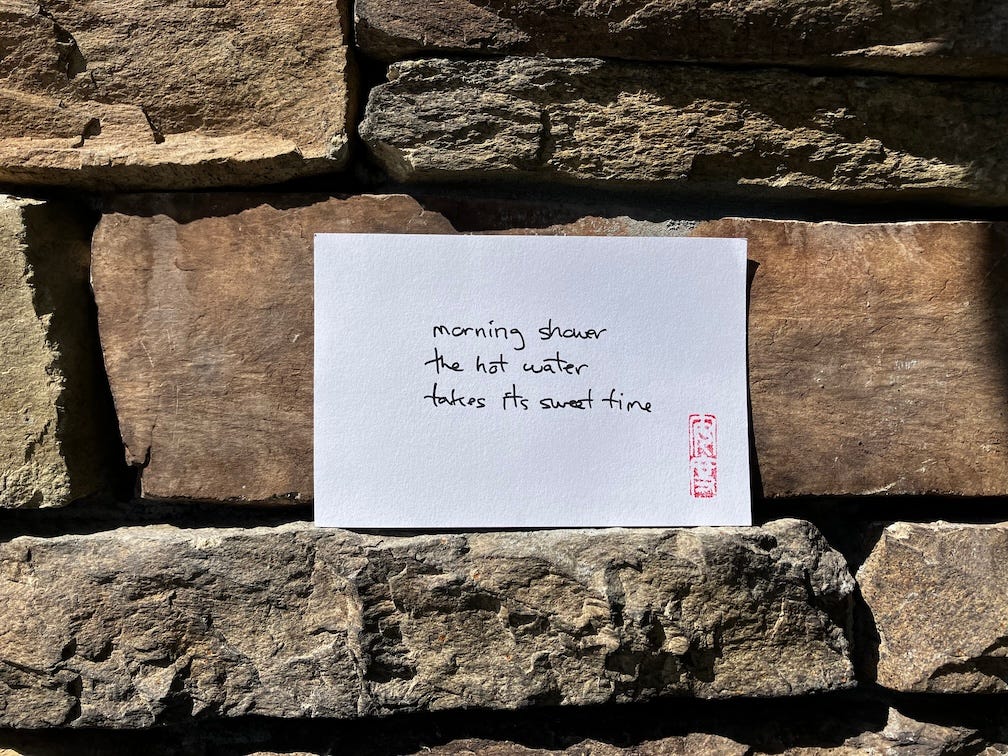 morning shower
the hot water
takes its sweet time